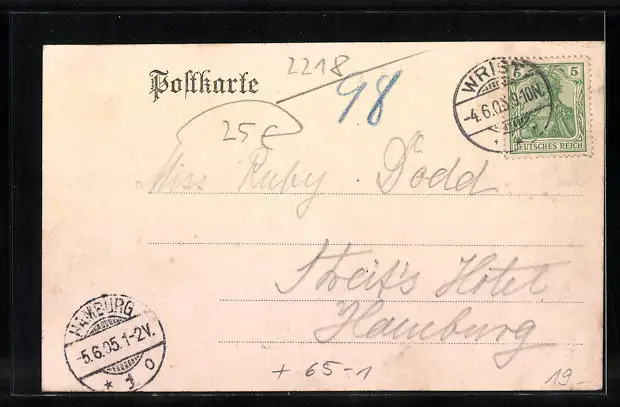 Postkarte
2218
98
25
WRIST
-4.6.05.9-10N.
5 5
DEUTSCHES REICH
Miss Ruby Dodd
Streit's Hotel
Hamburg
HAMBURG
-5.6.05.1-2V.
* 1 o
+ 65-1
19.-